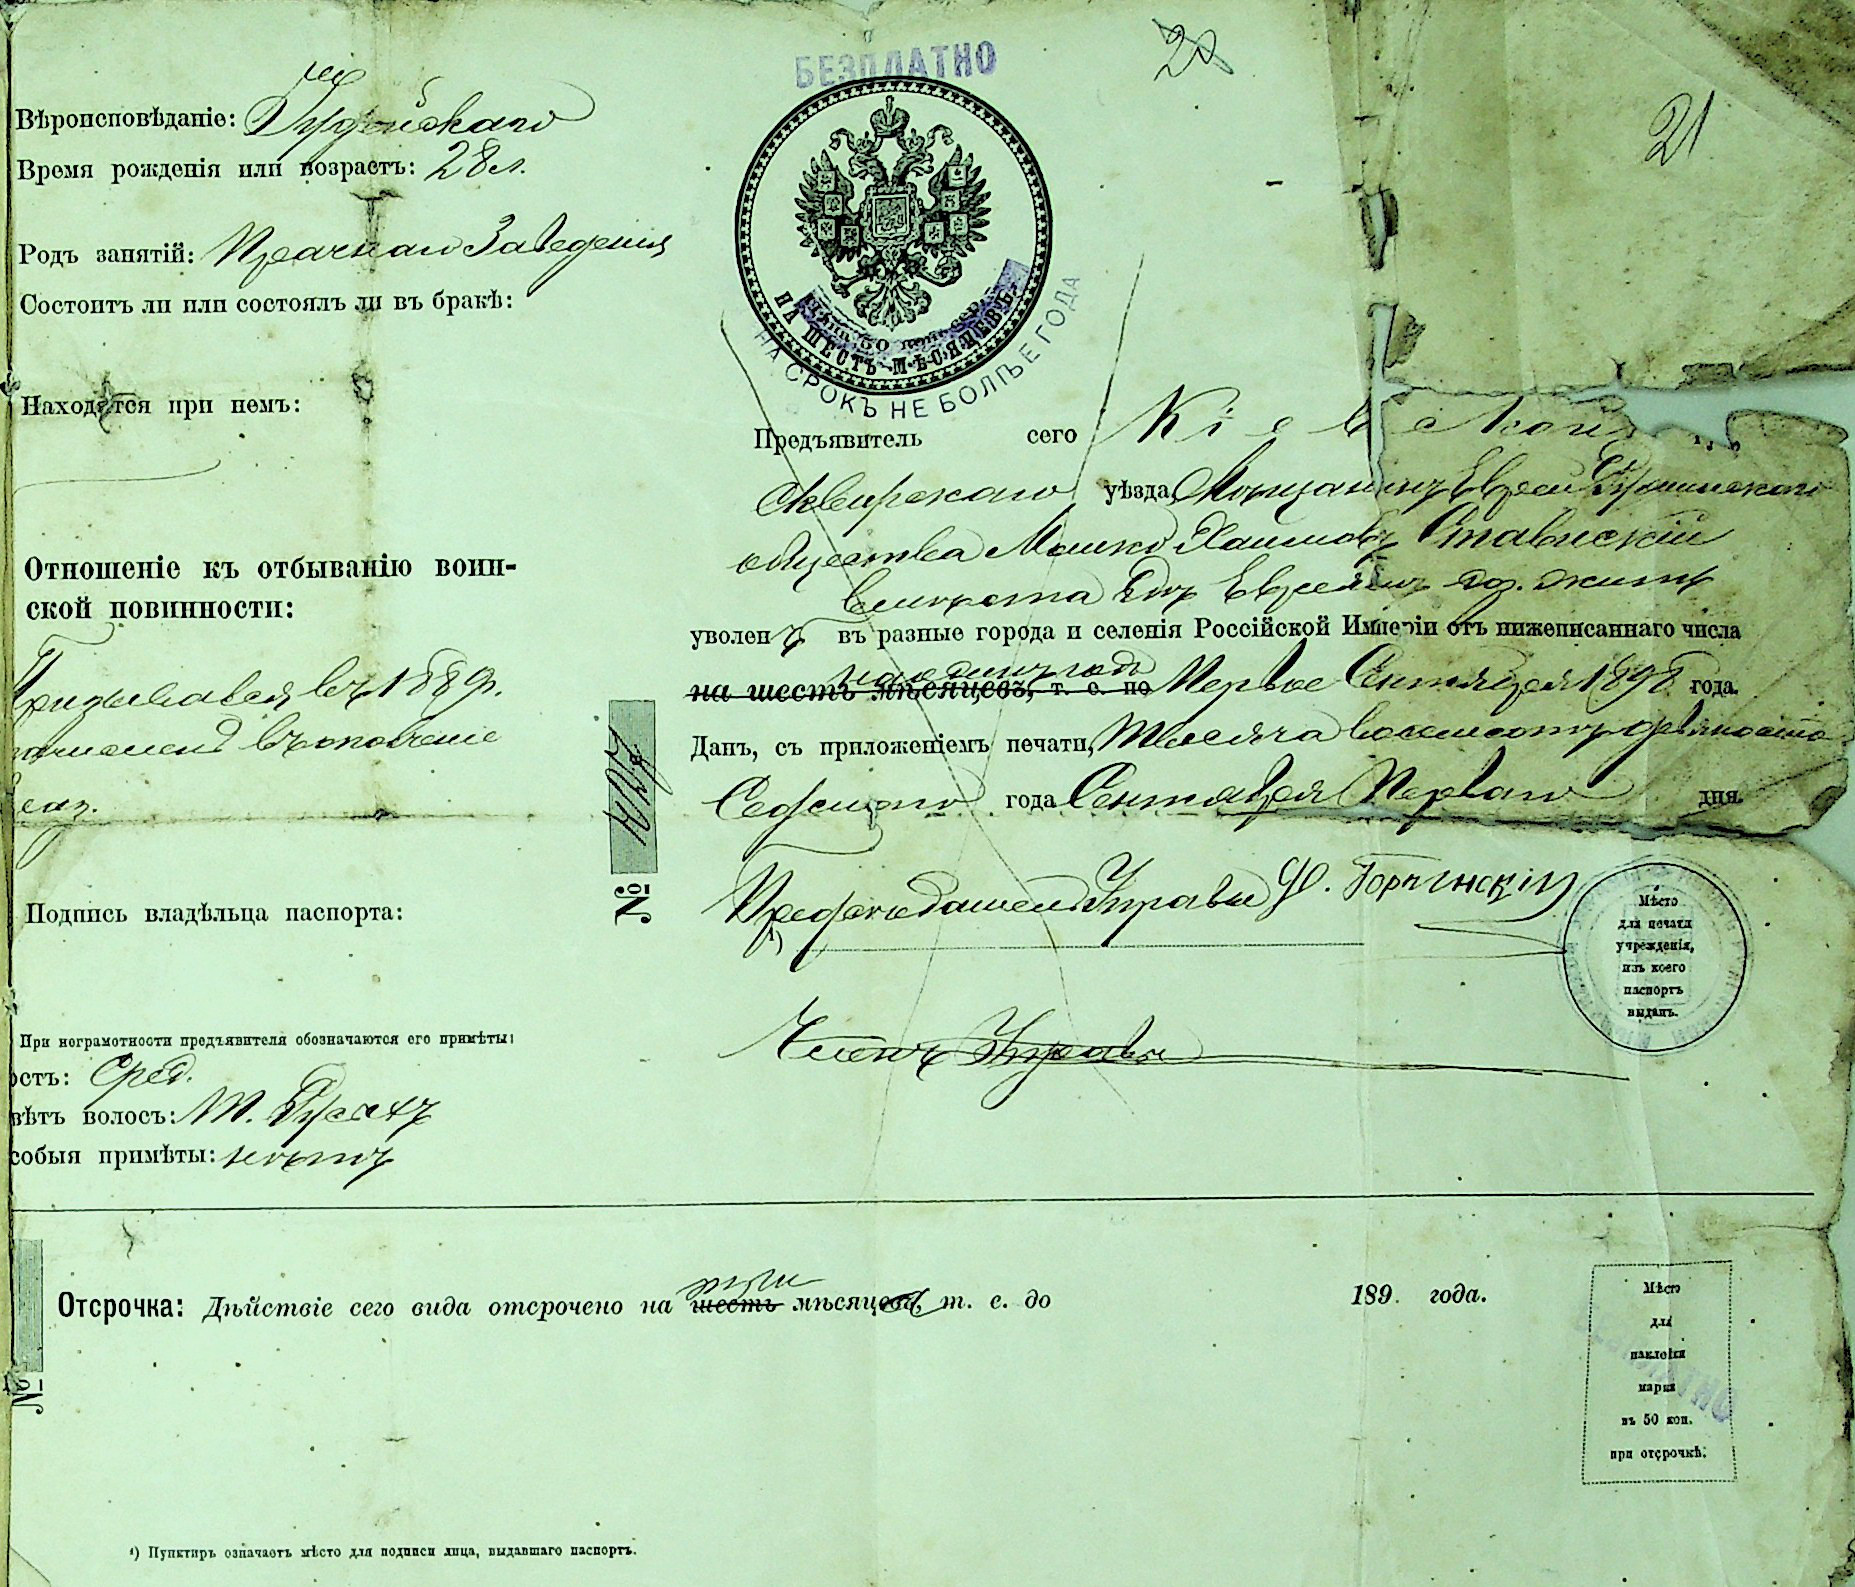 БЕЗПЛАТНО
20
21
Вѣроисповѣданіе: Іудейскаго
Время рожденія или возрастъ: 28 л.
Родъ занятій: Прачнаго Заведенія
Состоитъ ли или состоялъ ли въ бракѣ:
Находятся при немъ:
цѣна 50 коп. сер.
НА ШЕСТЬ МѢСЯЦЕВЪ
НА СРОКЪ НЕ БОЛѢЕ ГОДА
Предъявитель сего Кіевской
Сквирскаго уѣзда, Мѣщанинъ Еврей
общества Мошко Хаимовъ Ставискій
Евреямъ доз. жить
уволенъ въ разные города и селенія Россійской Имперіи отъ нижеписаннаго числа
на одинъ годъ
на шесть мѣсяцевъ, т. е. по Первое Сентября 1898 года.
Данъ, съ приложеніемъ печати, Тысяча восемьсотъ девяносто
Седьмого года Сентября Перваго дня.
Отношеніе къ отбыванію воин-
ской повинности:
Призывался въ 1889 г.
въ ополченіе
№ 1027
Подпись владѣльца паспорта:
Предсѣдатель Управы
¹)
Мѣсто
для печати
учрежденія,
изъ коего
паспортъ
выданъ.
Членъ Управы
При неграмотности предъявителя обозначаются его примѣты:
остъ: Сред.
вѣтъ волосъ: Т. Русыхъ
собыя примѣты: нѣтъ
№
три
Отсрочка: Дѣйствіе сего вида отсрочено на шесть мѣсяцевъ, т. е. до 189 . года.
Мѣсто
для
наклейки
марки
въ 50 коп.
при отсрочкѣ.
БЕЗПЛАТНО
¹) Пунктиръ означаетъ мѣсто для подписи лица, выдавшаго паспортъ.